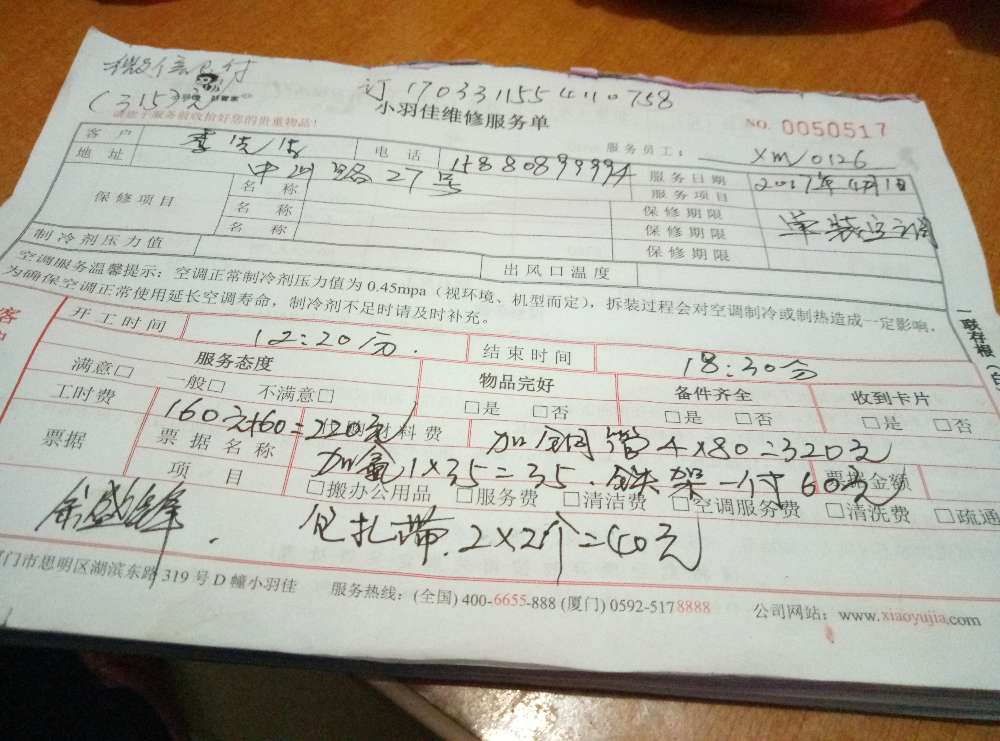 微信已付
(315元)
订 1703311554110758
小羽佳维修服务单
NO. 0050517
请您于服务前收拾好您的贵重物品!
服务员工: XM/0126
客户 电话 15880899994 服务日期 2017年4月1日
地址 中山路27号 服务项目 单装空调
保修项目 名称 保修期限
名称 保修期限
名称 保修期限
制冷剂压力值 出风口温度
空调服务温馨提示:空调正常制冷剂压力值为 0.45mpa(视环境、机型而定),拆装过程会对空调制冷或制热造成一定影响.
为确保空调正常使用延长空调寿命,制冷剂不足时请及时补充。
一联存根(白
客
开工时间 12:20分. 结束时间 18:30分
服务态度 物品完好 备件齐全 收到卡片
满意□ 一般□ 不满意□ □是 □否 □是 □否 □是 □否
工时费 160元+60=220元 材料费 加铜管4×80=320元
票据 票据名称 加氟1×35=35.铁架一付60元 票据金额
项目 □搬办公用品 □服务费 □清洁费 □空调服务费 □清洗费 □疏通
包扎带.2×2个=40元
厦门市思明区湖滨东路 319 号 D 幢小羽佳 服务热线:(全国) 400-6655-888 (厦门) 0592-5178888 公司网站:www.xiaoyujia.com